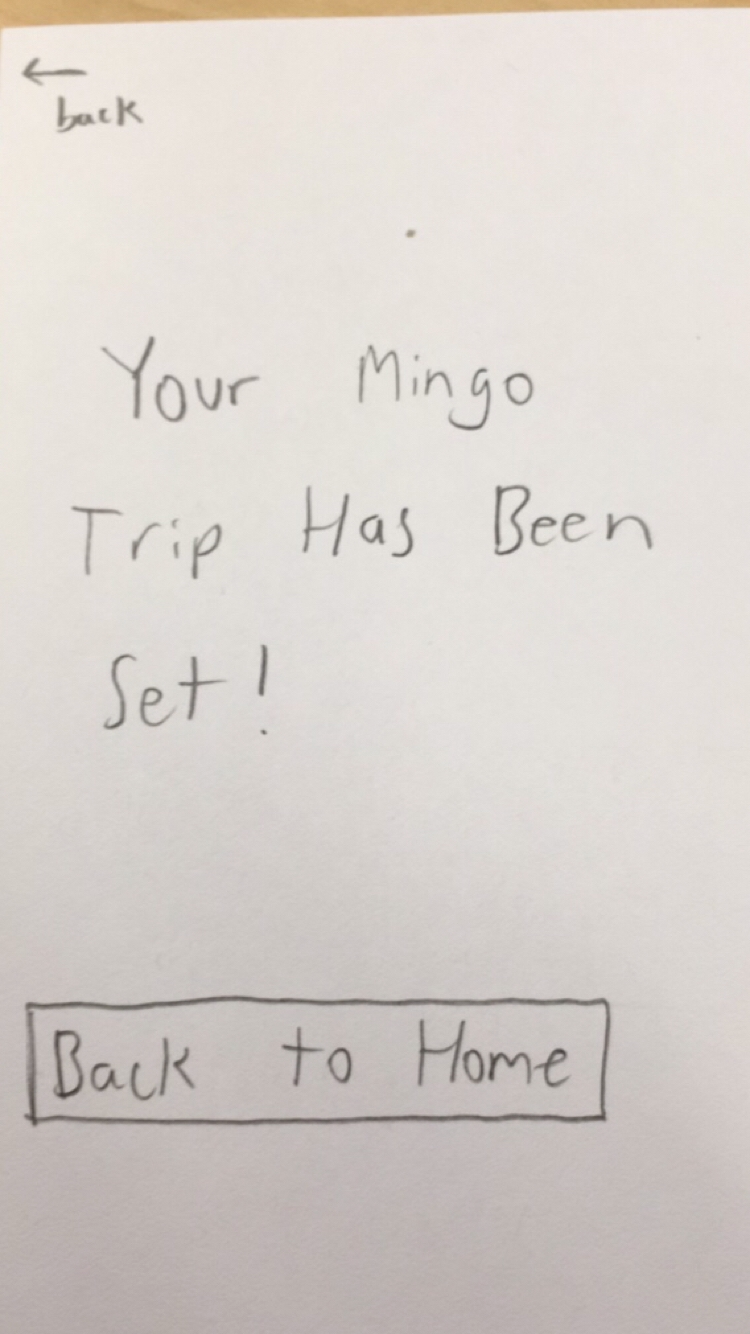 back
Your Mingo
Trip Has Been
Set!
Back to Home